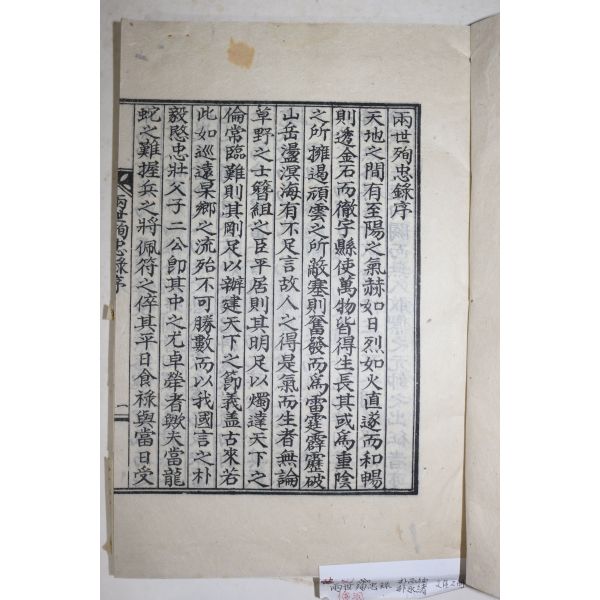 兩世殉忠錄序
天地之間有至陽之氣赫如日烈如火直遂而和暢
則透金石而徹宇縣使萬物皆得生長其或爲重陰
之所擁遏頑雲之所蔽塞則奮發而爲雷霆霹靂破
山岳盪溟海有不足言故人之得是氣而生者無論
草野之士簪組之臣平居則其明足以燭達天下之
倫常臨難則其剛足以辦建天下之節義盖古來若
此如巡遠杲鄕之流殆不可勝數而以我國言之朴
毅愍忠壯父子二公卽其中之尤卓犖者歟夫當龍
蛇之難握兵之將佩符之倅其平日食祿與當日受
兩世殉忠錄序
一
兩世殉忠錄